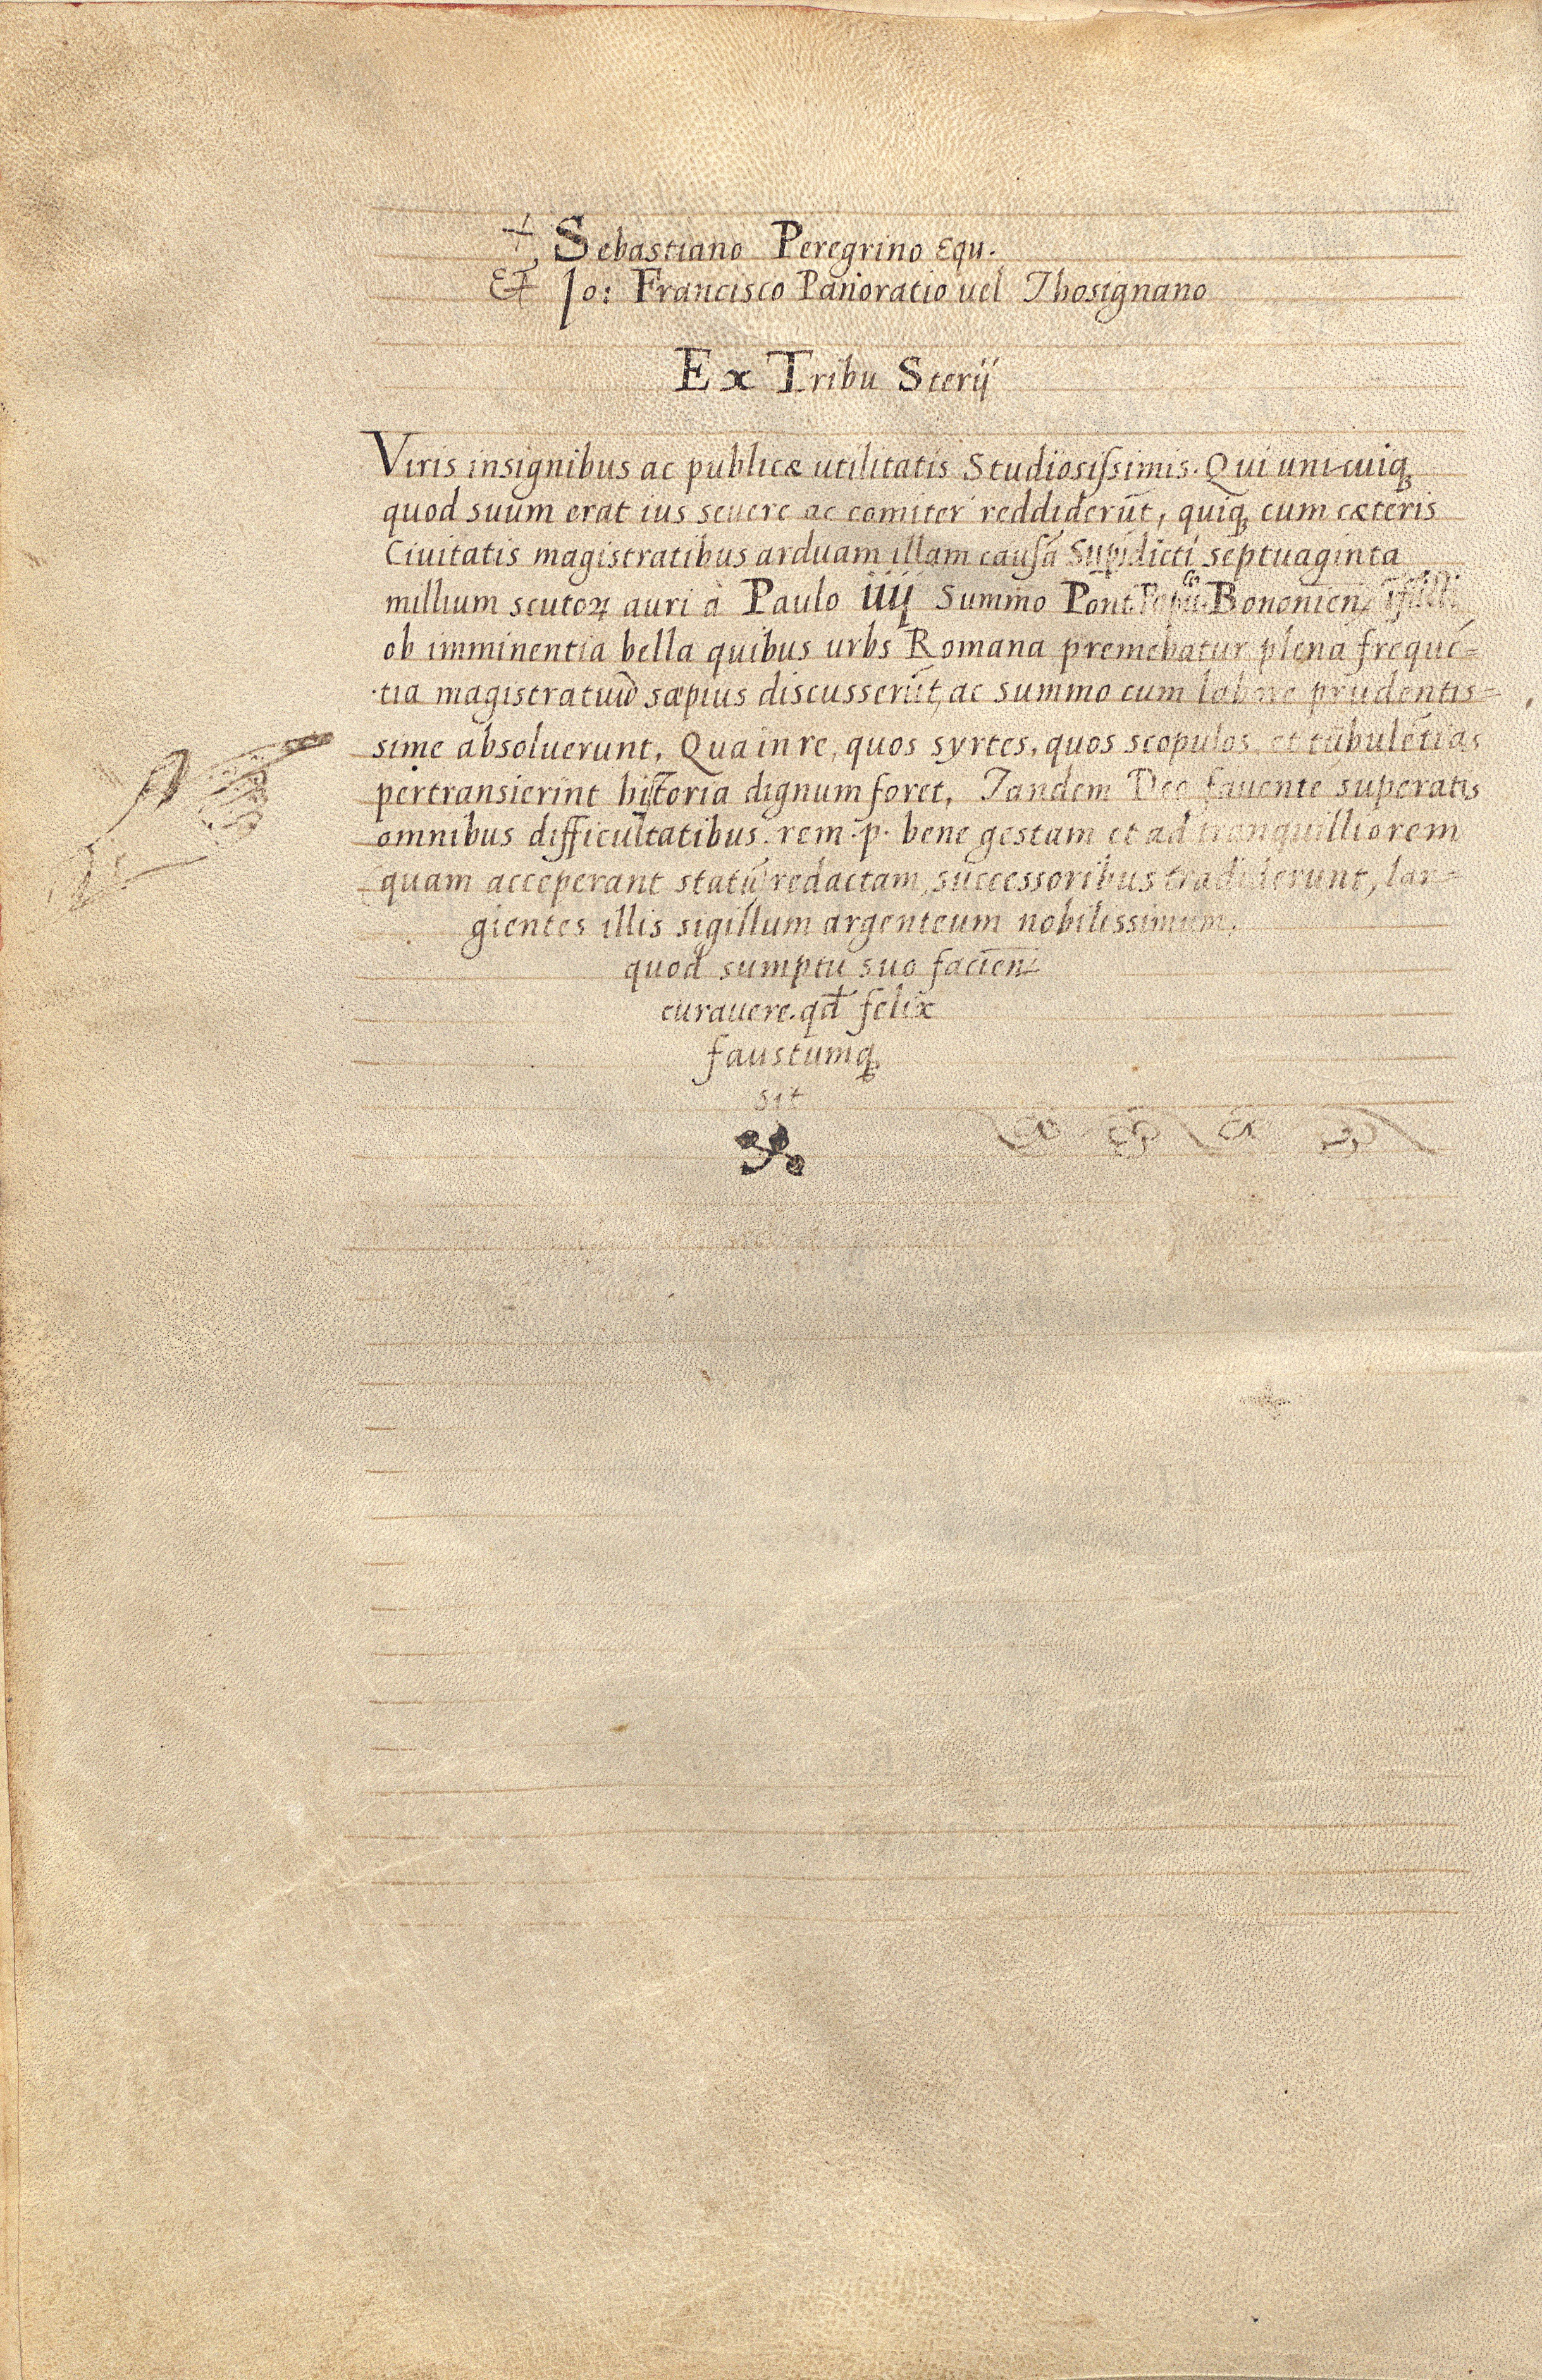 + Sebastiano Peregrino Equ.
& Io: Francisco Panoratio uel Thosignano
Ex Tribu Sterij
Viris insignibus ac publicæ utilitatis Studiosissimis. Qui unicuiqꝫ
quod suum erat ius seuere ac comiter reddiderūt, quiqꝫ cum cæteris
Ciuitatis magistratibus arduam illam causā Supʳadicti septuaginta
millium scutoꝝ auri à Paulo iiij Summo Pont. Bononien
ob imminentia bella quibus urbs Romana premebatur plena frequē=
tia magistratuū sæpius discusserūt, ac summo cum labore prudentis=
sime absoluerunt. Qua in re, quos syrtes, quos scopulos, et tūbulētias
pertransierint hitoria dignum foret. Tandem Deo fauente superatis
omnibus difficultatibus. rem .p. bene gestam et ad tranquilliorem
quam acceperant statū redactam, successoribus tradiderunt, lar=
gientes illis sigillum argenteum nobilissimum,
quod sumptu suo facien
curauere. qđ felix
faustumqꝫ
sit